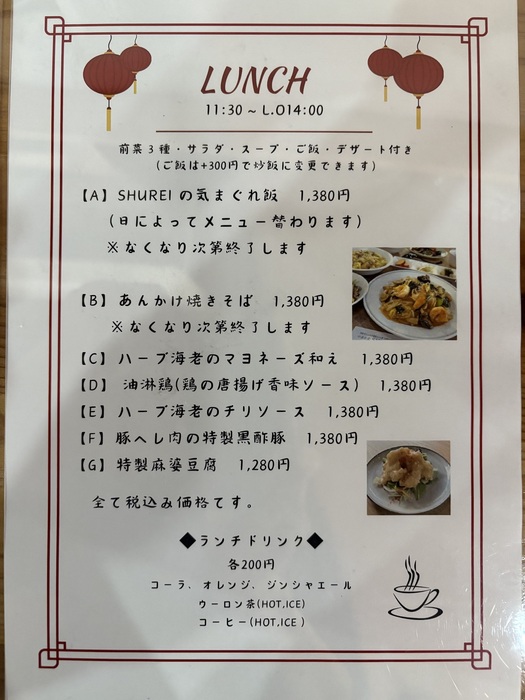 LUNCH
11:30 ~ L.O14:00
前菜3種・サラダ・スープ・ご飯・デザート付き
(ご飯は+300円で炒飯に変更できます)
【A】SHUREIの気まぐれ飯 1,380円
(日によってメニュー替わります)
※なくなり次第終了します
【B】あんかけ焼きそば 1,380円
※なくなり次第終了します
【C】ハーブ海老のマヨネーズ和え 1,380円
【D】油淋鶏(鶏の唐揚げ香味ソース) 1,380円
【E】ハーブ海老のチリソース 1,380円
【F】豚ヘレ肉の特製黒酢豚 1,380円
【G】特製麻婆豆腐 1,280円
全て税込み価格です。
◆ランチドリンク◆
各200円
コーラ、オレンジ、ジンジャエール
ウーロン茶(HOT,ICE)
コーヒー(HOT,ICE )